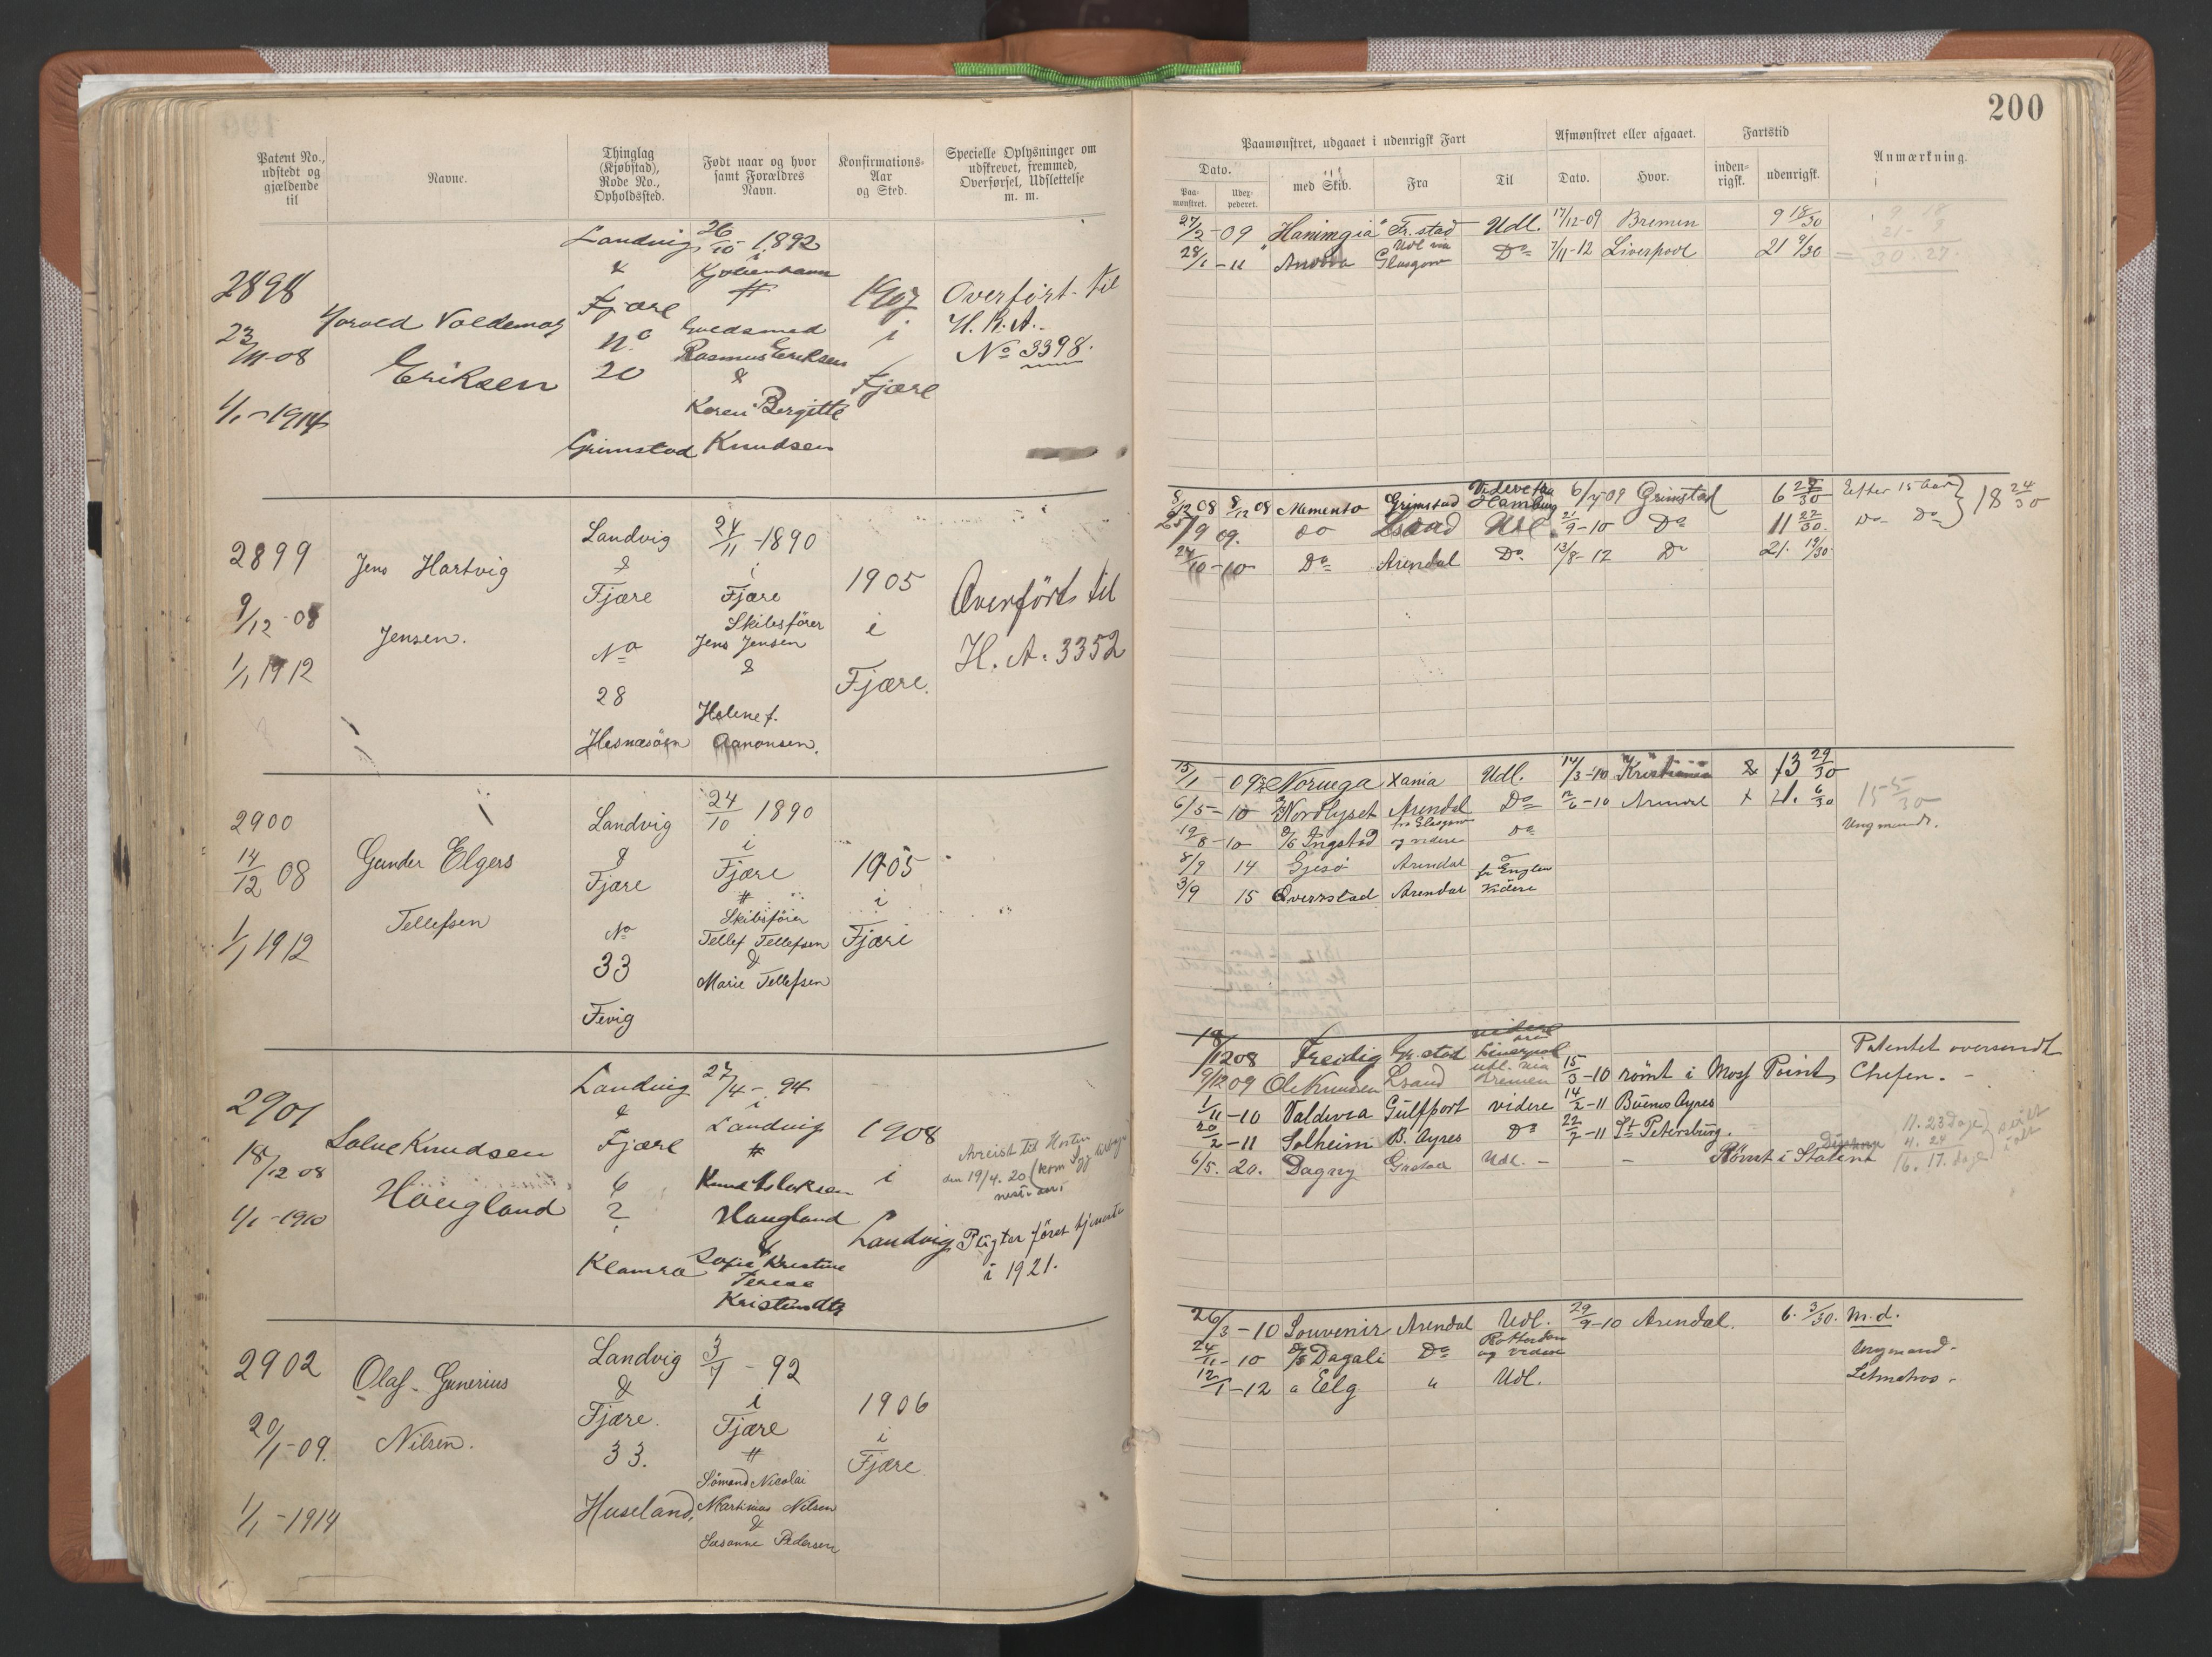 200
Patent No., udstedt og gjældende til
Navne.
Thinglag (Kjøbstad), Rode No., Opholdssted.
Født naar og hvor samt Forældres Navn.
Konfirmations-Aar og Sted.
Specielle Oplysninger om udskrevet, fremmed, Overførsel, Udslettelse m. m.
Paamønstret, udgaaet i udenrigsk Fart
Dato.
Paa-mønstret.
Udex-pederet.
med Skib.
Fra
Til
Afmønstret eller afgaaet.
Dato.
Hvor.
Fartstid
inden-rigsk.
udenrigsk.
Anmærkning.
2898
23/11-08
1/1-1914
Valdemar
Eriksen
Landvig
&
Fjære
No
20
Grimstad
26/10 1892
i
Kjøbenhavn
#
Guldsmed
Rasmus Eriksen
&
Karen Bergitte
Knudsen
1907
i
Fjære
Overført til
H.B.A.
No 3398.
27/2-09 Fr.stad Udl. 17/12-09 Bremen 9 18/30
28/1-11 Glasgow Do 7/11-12 Liverpool 21 9/30
30.27.
2899
9/12-08
1/1 1912
Jens Hartvig
Jensen.
Landvig
&
Fjære
No
28
Hesnæsøen
24/11-1890
i
Fjære
Skibsfører
Jens Jensen
&
Helene f.
Aanonsen.
1905
i
Fjære.
Overført til
H.A. 3352
8/12 08 8/12 08 Memento Grimstad Hamburg 6/7-09 Grimstad 6 27/30 Efter 15 Aar } 18 24/30
25/9 09. do Udl. 21/9-10 Do 11 22/30. Do Do
24/10-10 Do Arendal Do 13/8-12 Do 21. 19/30.
2900
14/12 08
1/1 1912
Gunder Elgers
Tellefsen
Landvig
&
Fjære
No
33
Fevig
24/10 1890
i
Fjære
#
Skibsfører
Tellef Tellefsen
&
Marie Tellefsen
1905
i
Fjære
15/1-09 Noruega Xania Udl. 14/3-10 Kristiania & 13 29/30
6/5-10 Nordlyset Arendal Do 6-10 Arendal 6/30
15 5/30
Ungmand.
19/8-10 D/S Ingstad fra Glasgow og videre Do
8/9 14 Gjesø Arendal
3/9 15 Qverrstad Arendal Videre
2901
18/12 08
1/1-1910
Salve Knudsen
Haugland
Landvig
&
Fjære
6
2
Klamra
27/4-94
i
Landvig
#
Haugland
&
Sofie Kristine
Terese
1908
i
Landvig
den 19/4.20
i 1921.
18/12 08 Freidig Gr.stad videre Liverpool
Patentet oversendt
9/12 09 Ole Knudsen Lsand udl. via Bremen 15/3-10 rømt i Moss Point, Chefen.-
1/11-10 Valdivia Gülfport videre 14/2-11 Buenos Ayres
20/2-11 Solheim B. Ayres Do 22/7-11 St Petersburg.
6/5. 20. Dagny Udl.- - Rømt i Statene
11. 23 Dage
4. 24
16. 17. dage
2902
20/1-09.
1/1-1914
Olaf Gunerius
Nilsen.
Landvig
&
Fjære.
33.
Huseland,
3/7-92
i
Fjære
#
Sømand Nicolai
Martinius Nilsen
&
Susanne Pedersen
1906
i
Fjære
26/3-10 Souvenir Arendal Udl. 29/9-10 Arendal. 6. 3/30. M.d.
24/11-10 D/S Dagali Do Rotterdam og videre Ungmand-
12/1-12 Elg " Udl. Letmatros-